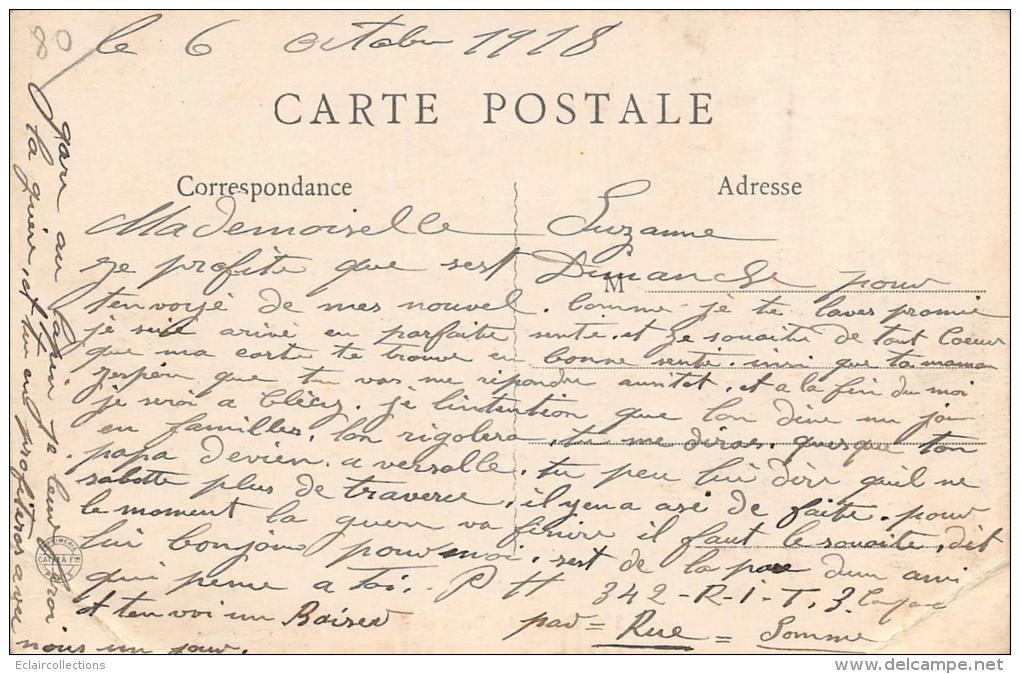 80
le 6 octobre 1918
CARTE POSTALE
Correspondance
Adresse
M
Mademoiselle Suzanne
Je profite que sest Dimanche pour
tenvoyé de mes nouvel. Comme je te lavès promie
je suis arivé en parfaite senté. et je souaite de tout Coeur
que ma carte te trouve en bonne senté. insi que ta maman
jespér que tu vas me répondre ausitot. et a la fin du moi
je seroi a je lintention que lon dine un jour
en familles. lon rigolera. tu me diras. quesque ton
papa devien. a versalle. tu peu lui dire quil ne
sabotte plus de traverce. il yena asé de faite. pour
le moment la guerre va finire il faut le souaite, dit
lui bonjour pour moi. sest de la pare dun ami
qui pense a toi. P H 342-R-I-T. 3.
et ten voi un Baiser par = Rue = Somme
gare au lapin je leur feroi
la guère. et tu en profiteras avec
nous un jour.
Eclaircollections
delcampe.net